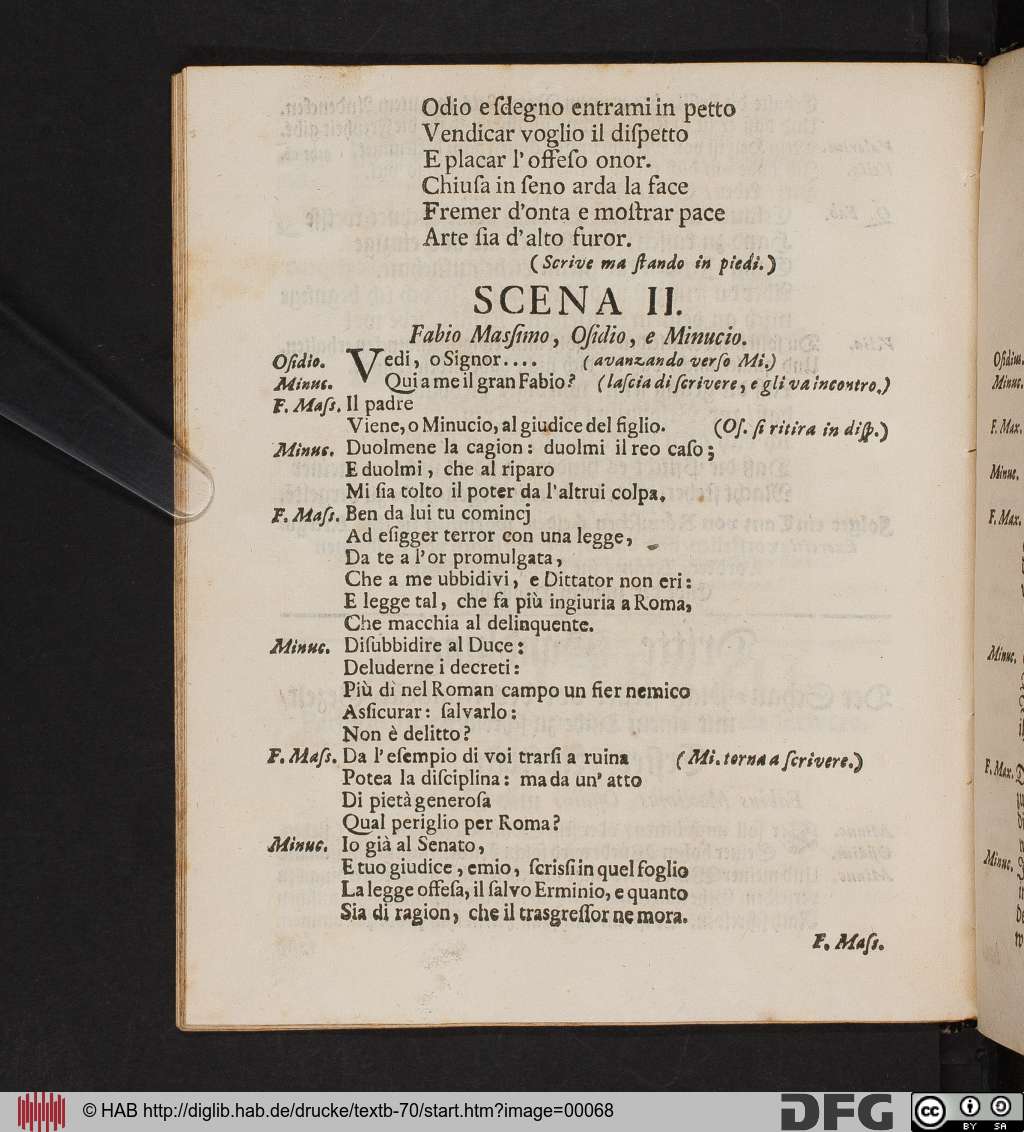 Odio e ſdegno entrami in petto
Vendicar voglio il diſpetto
E placar l'offeſo onor.
Chiuſa in ſeno arda la face
Fremer d'onta e moſtrar pace
Arte ſia d'alto furor.
(Scrive ma ſtando in piedi.)
SCENA II.
Fabio Maſſimo, Oſidio, e Minucio.
Oſidio. Vedi, o Signor.... (avanzando verſo Mi.)
Minuc. Qui a me il gran Fabio? (laſcia di ſcrivere, e gli va incontro.)
F. Maſs. Il padre
Viene, o Minucio, al giudice del figlio. (Oſ. ſi ritira in diſp.)
Minuc. Duolmene la cagion: duolmi il reo caſo;
E duolmi, che al riparo
Mi ſia tolto il poter da l'altrui colpa.
F. Maſs. Ben da lui tu comincj
Ad eſigger terror con una legge,
Da te a l'or promulgata,
Che a me ubbidivi, e Dittator non eri:
E legge tal, che fa più ingiuria a Roma,
Che macchia al delinquente.
Minuc. Diſubbidire al Duce:
Deluderne i decreti:
Più dì nel Roman campo un fier nemico
Aſſicurar: ſalvarlo:
Non è delitto?
F. Maſs. Da l'eſempio di voi trarſi a ruina (Mi. torna a ſcrivere.)
Potea la diſciplina: ma da un' atto
Di pietà generoſa
Qual periglio per Roma?
Minuc. Io già al Senato,
E tuo giudice, emio, ſcriſſi in quel foglio
La legge offeſa, il ſalvo Erminio, e quanto
Sia di ragion, che il trasgreſſor ne mora.
F. Maſs.
Oſidiu.
Minuc.
F. Max.
Minuc.
F. Max.
Minuc.
F. Max.
Minuc.
© HAB http://diglib.hab.de/drucke/textb-70/start.htm?image=00068
DFG
cc BY SA